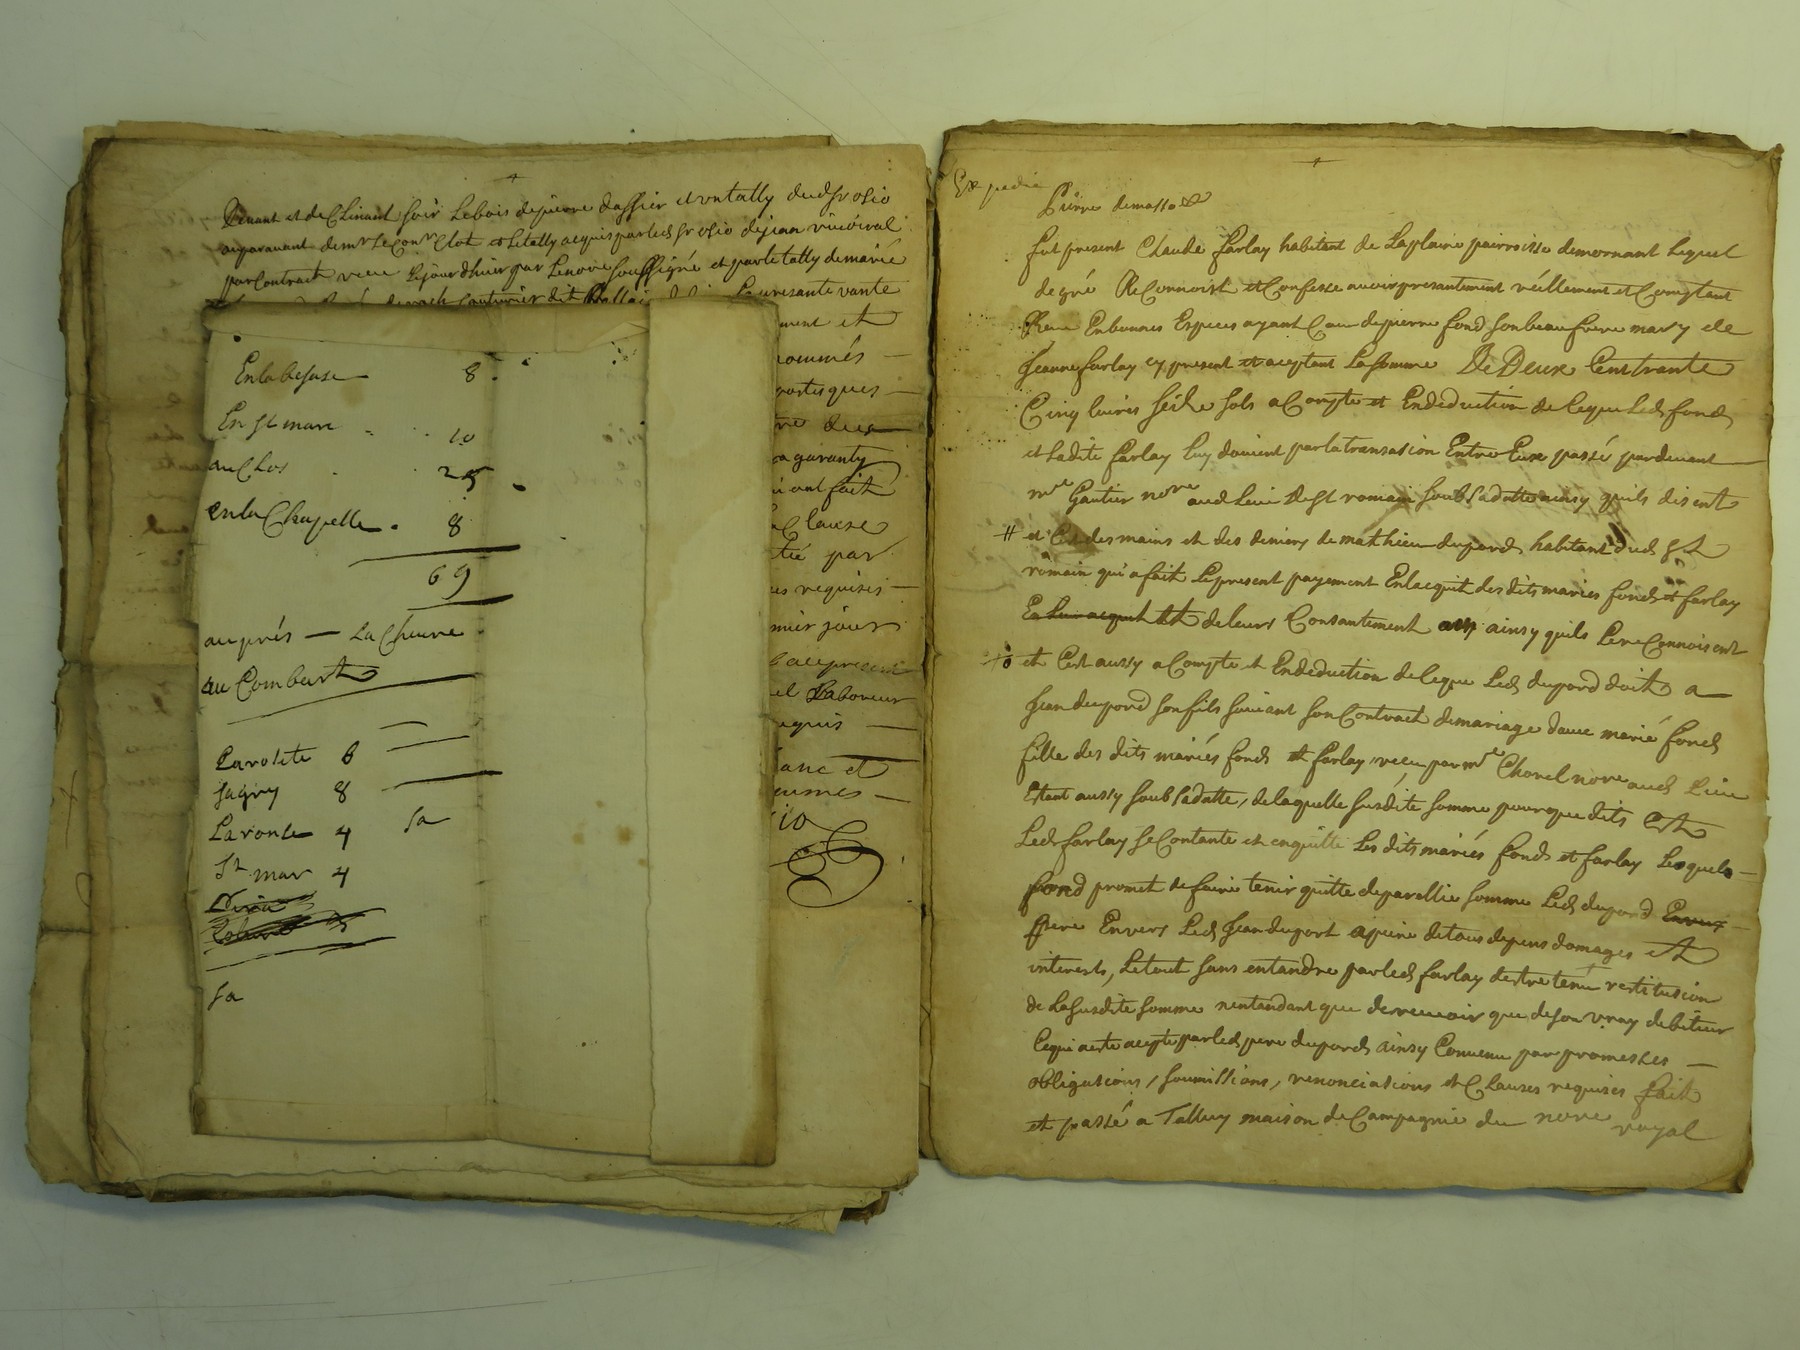 Venant et de Clinand soir Le bois de pierre dassier et un tally dud Srosio
auparavant de mr Le Conr Clot et Le tally acquis par led Srosio de jean
par Contract receu ce jourdhuier par Le nore soussigné et par le tally de marie
La presante vante
ment et
nommés —
dues
garanty
ont fait
Clause
par
es requises —
mier jour
au present
el Laboureur
requis —
anc et
Enlabesase 8
En st marc 10
au Clos 25
en la Chapelle 8
69
au prés — La Cheure
au Combart
La rolete 6
sagny 8
La ronse 4 sa
St mar 4
sa
Expedié
Pierre demasso
fut present Claude farlay habitant de Laplaine parroisse demornant Lequel
de gré ReConnoist et Confesse avoir presantement réellement et Comptant
Receu En bonnes Especes ayant Cour de pierre fond son beau frere mary de
Jeanne farlay cy present et aceptant La somme De Deux Cent trante
Cinq livres seize sols a Compte et En deduction de ce que Led fond
et Ladite farlay luy doivent par la transasion Entre Eux passé pardevant
me Gautier nore aud Lieu de st romain soub sa datte ainsy quils disent
et C'est des mains et des deniers de mathieu dupord habitant dud st
romain qui a fait Le present payement En lacquit des dits mariés fond et farlay
En Leur acquit et de leurs Consantement ainsy quils Le reConnoisent
et C'est aussy a Compte et En deduction de ce que Led dupord doit a
Jean dupord son fils suivant son Contract de mariage davec marie fond
fille des dits mariés fond et farlay receu par me Chorel nore aud Lieu
Estant aussy soub sa datte, de laquelle susdite somme pour que dits Est
Led farlay se Contante et en quitte Les dits mariés fond et farlay Lesquels —
fond promet de faire tenir quitte de parellie somme Led dupord Envers
pere Envers Led Jean duport a peine de tous depens domages et
interests, Le tout sans entandre par led farlay destre tenu restitusion
de La susdite somme n'entandant que de recevoir que de son vray debiteur
Ce qui a esté acepté par led pere dupord ainsy Convenu par promesses —
obligations, soumissions, renonciations et Clauses requises fait
et passé a Talluy maison de Campagnie du nore royal